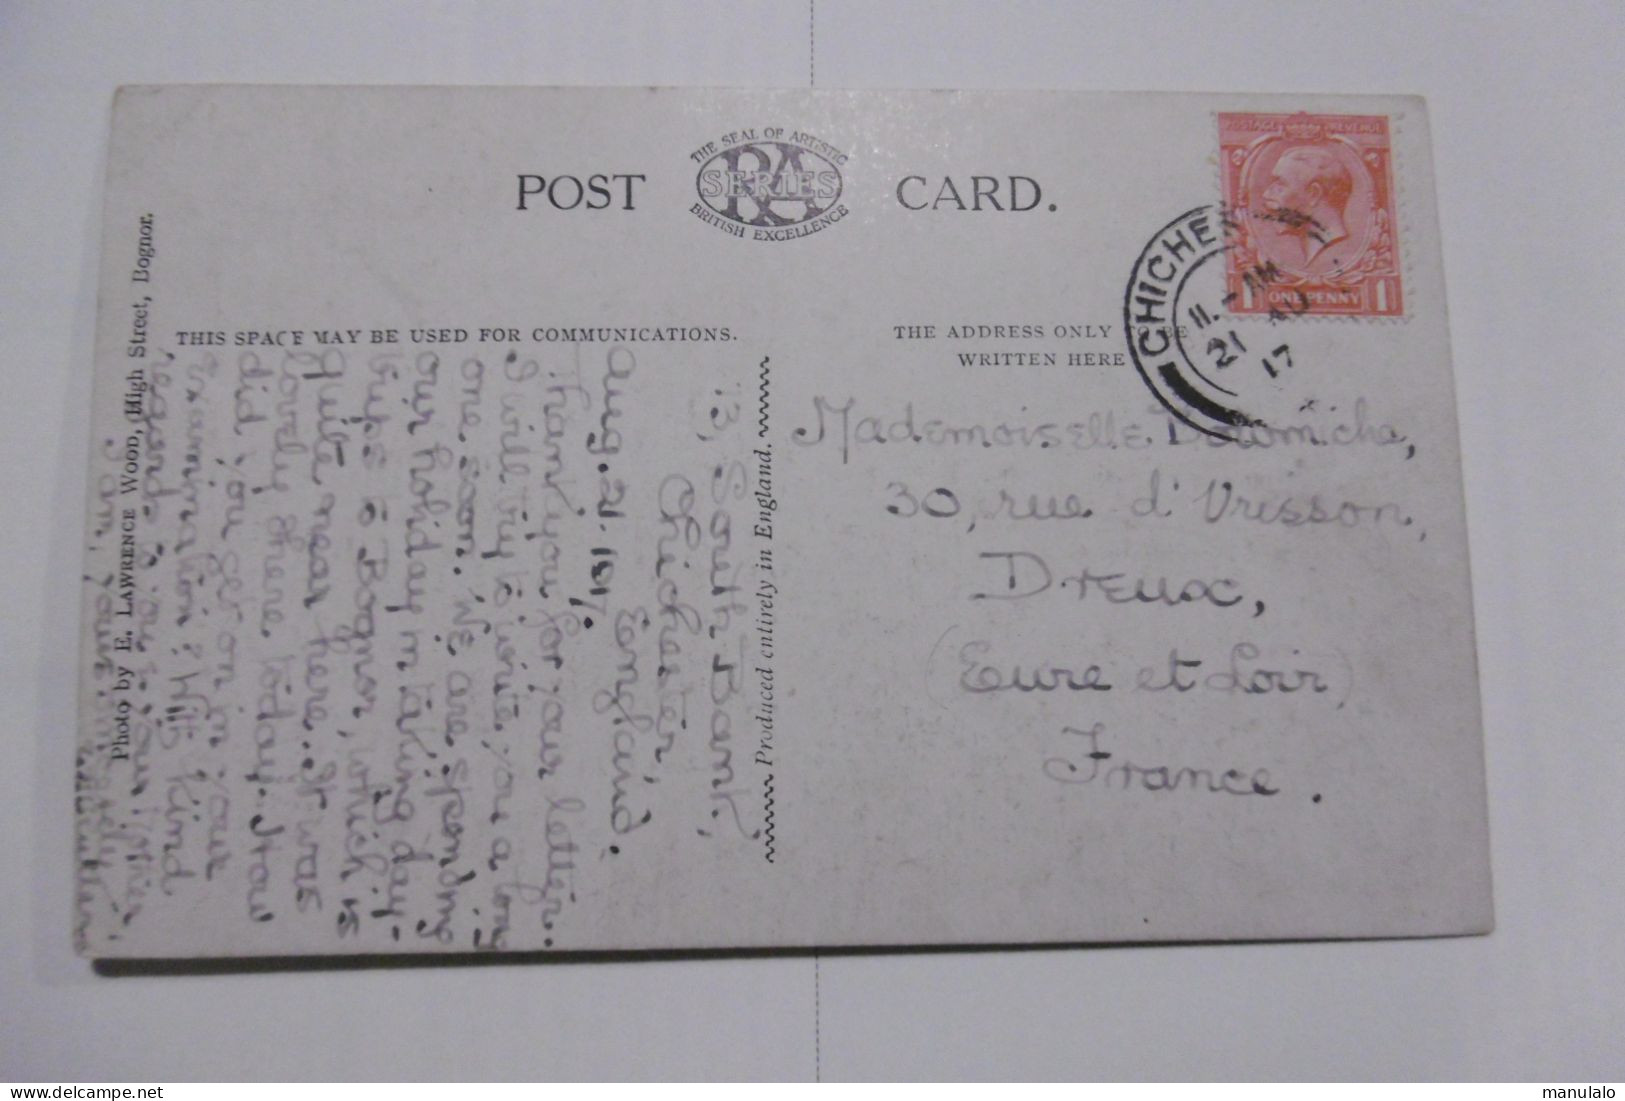 POST CARD.
THE SEAL OF ARTISTIC
RA
SERIES
BRITISH EXCELLENCE
POSTAGE REVENUE
1 ONE PENNY 1
CHICHE
11 - AM
21 AU
17
THIS SPACE MAY BE USED FOR COMMUNICATIONS.
THE ADDRESS ONLY TO BE
WRITTEN HERE
Photo by E. LAWRENCE WOOD, High Street, Bognor.
Produced entirely in England.
13, South Bank,
Chichester,
England.
Aug. 21. 1917.
Thank you for your letter.
I will try to write you a long
one soon. We are spending
our holiday in taking day-
trips to Bognor, which is
quite near here. It was
lovely there today. How
did you get on in your
examination? With kind
regards to you & your
I am, yours
Mademoiselle
30, rue d'Vrisson,
Dreux,
(Eure et Loir)
France.
manulalo